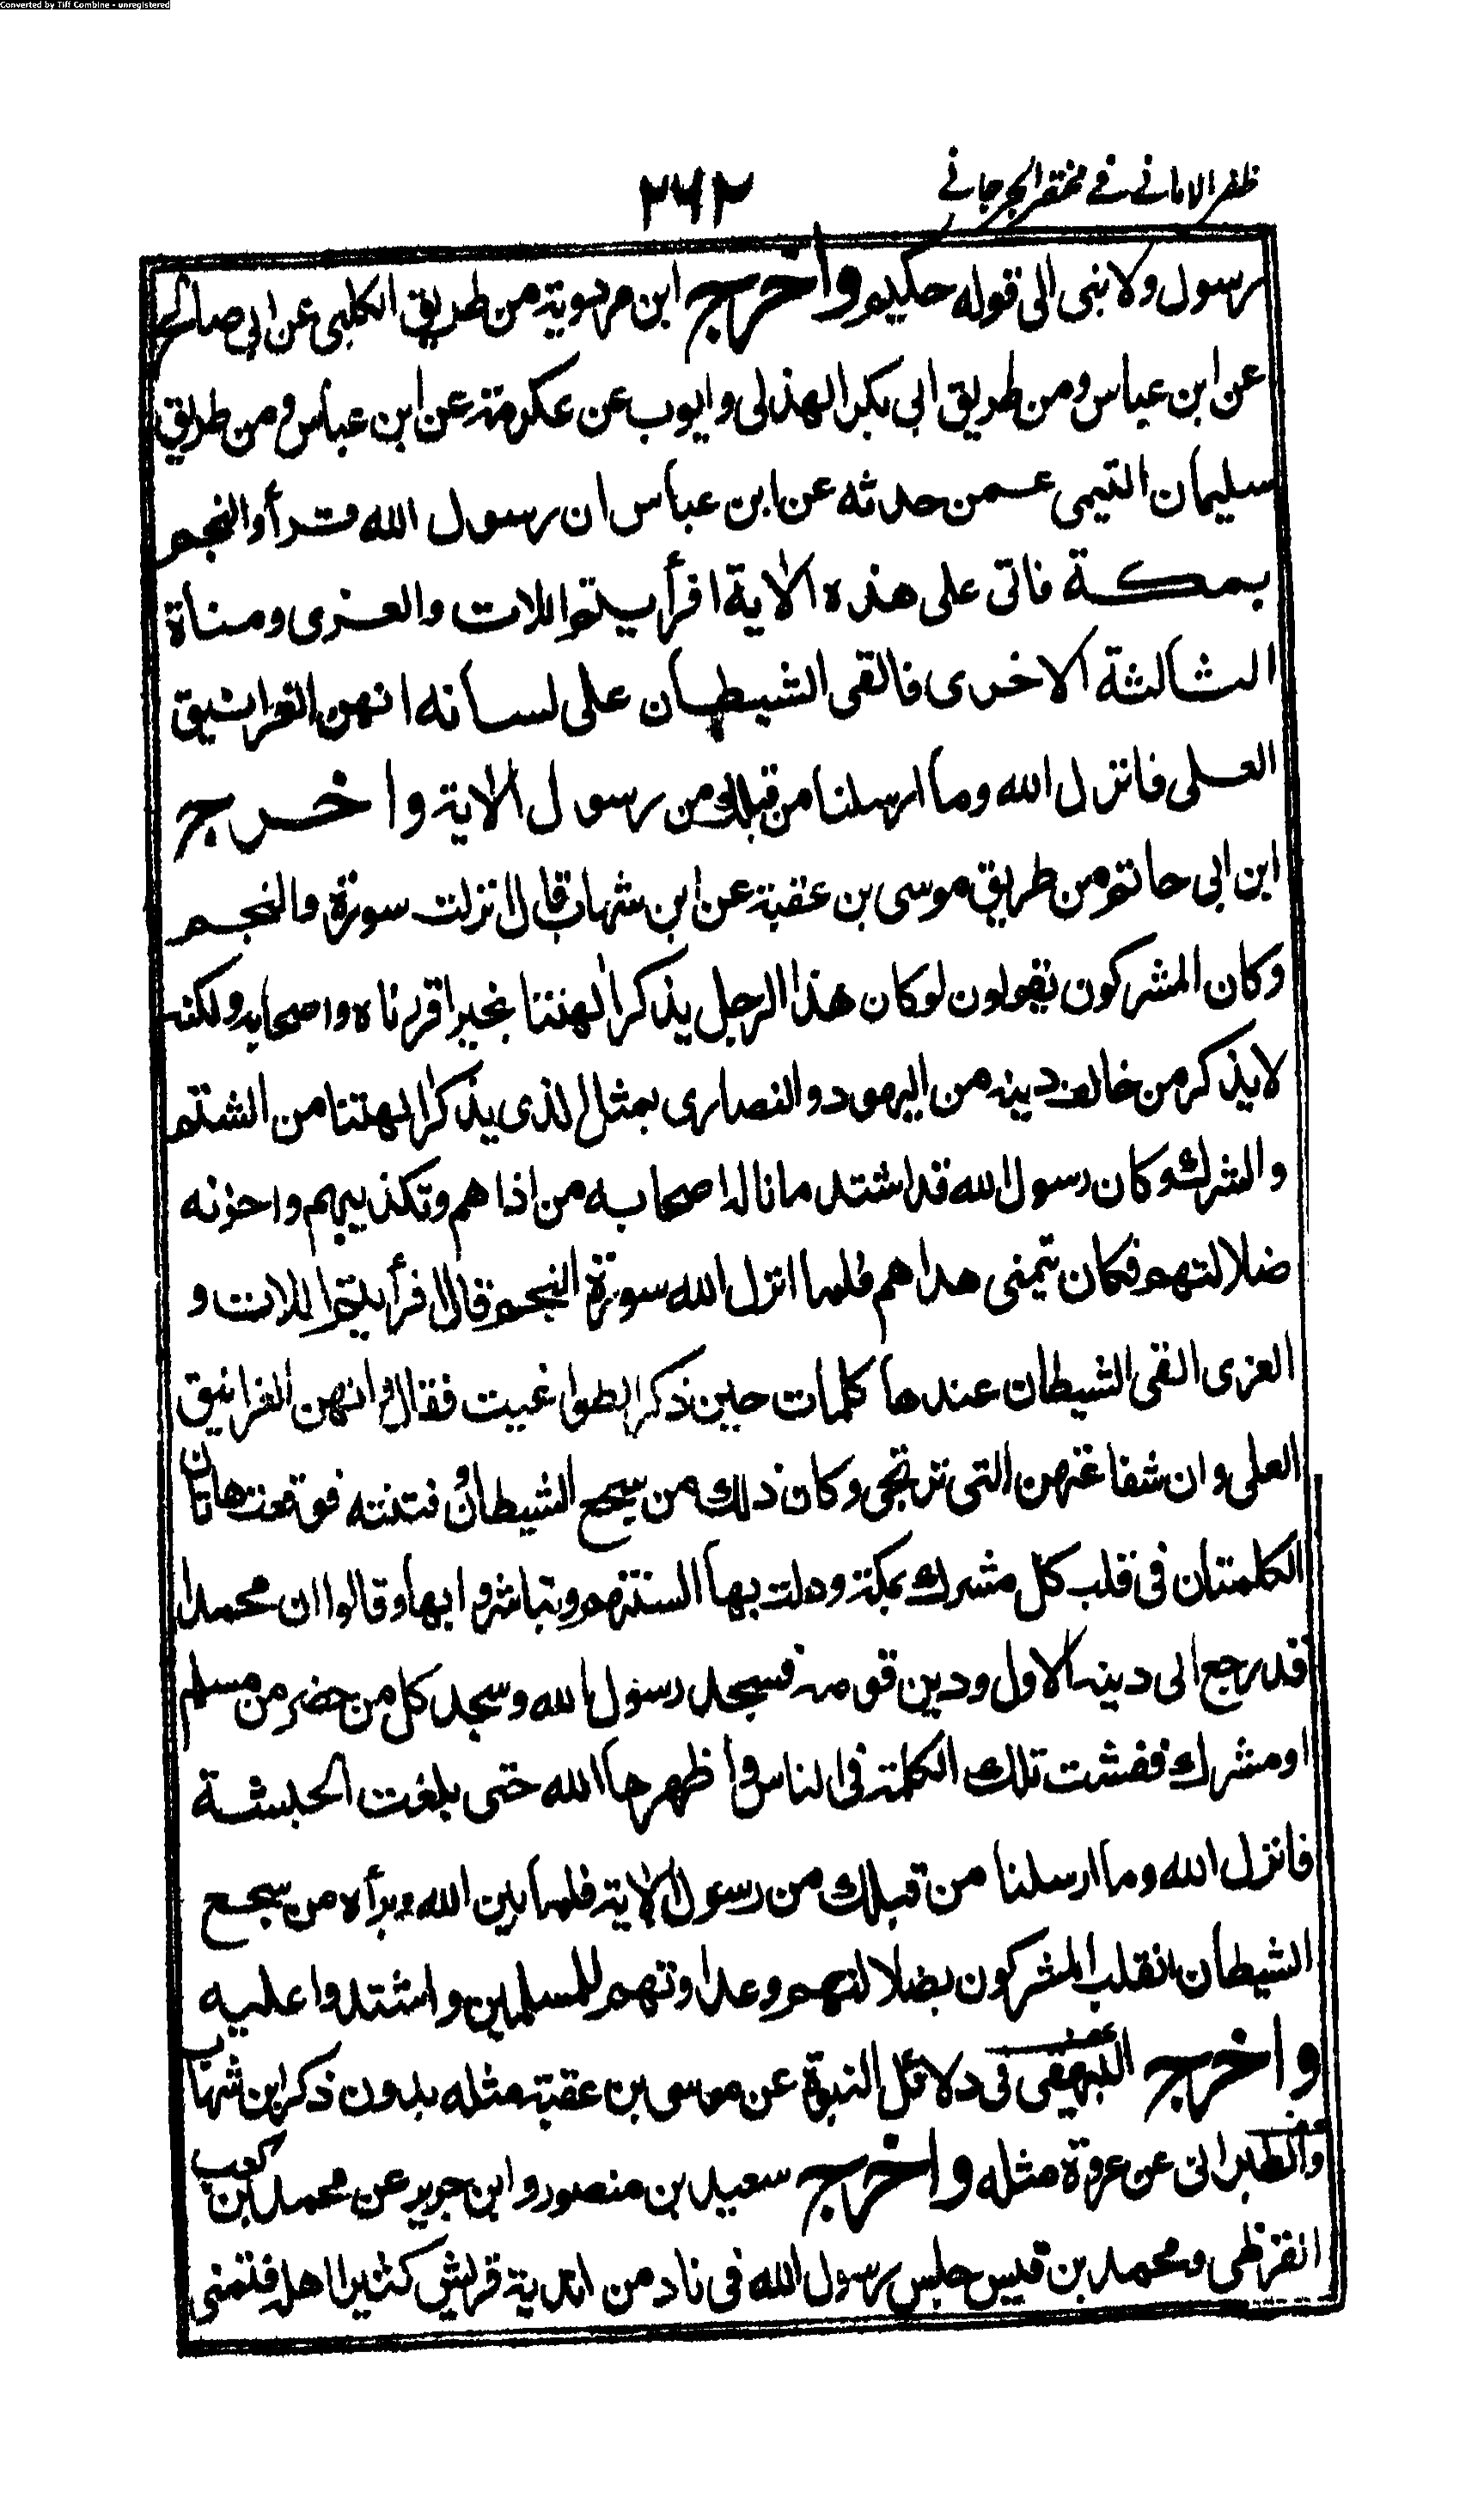 Converted by Tiff Combine - unregistered
ظفر الامانے فے مختصر الجرجانے
۲۶۲
رسول ولا نبی الی قوله حکیم واخرج ابن مردویة من طریق الکلبی عن ابی صالح
عن ابن عباس ومن طریق ابی بکر الهذلی وایوب عن عکرمة عن ابن عباس ومن طریق
سلیمان التیمی عمن حدثه عن ابن عباس ان رسول الله قرأ والنجم
بمكة فاتی علی هذه الاٰیة افرأیتم اللات والعزی ومناة
الثالثة الاخری فالقی الشیطان علی لسانه انهن الغرانیق
العلی فانزل الله وما ارسلنا من قبلك من رسول الاٰیة واخرج
ابن ابی حاتم من طریق موسی بن عقبة عن ابن شهاب قال انزلت سورة والنجم
وکان المشرکون یقولون لوکان هذا الرجل یذکر اٰلهتنا بخیر اقررناه واصحابه ولکنه
لا یذکر من خالف دینه من الیهود والنصاری بمثل الذی یذکر اٰلهتنا من الشتم
والشرك وکان رسول الله قد اشتد ما ناله اصحابه من اذاهم وتکذیبهم واحزنه
ضلالتهم فکان یتمنی هداهم فلما انزل الله سورة النجم قال افرأیتم اللات و
العزی القی الشیطان عندها کلمات حین ذکر الطواغیت فقال وانهن الغرانیق
العلی وان شفاعتهن التی ترتجی وکان ذلك من سجع الشیطان وفتنته فوقعت هاتان
الکلمتان فی قلب کل مشرك بمکة ودلت بها السنتهم وتباشروا بها وقالوا ان محمدا
قد رجع الی دینه الاول ودین قومه فسجد رسول الله وسجد کل من حضر من مسلم
او مشرك ففشت تلك الکلمة فی الناس واظهرها الله حتی بلغت الحبشة
فانزل الله وما ارسلنا من قبلك من رسول الاٰیة فلما بین الله وبرأه من سجع
الشیطان انقلب المشرکون بضلالتهم وعداوتهم للمسلمین واشتدوا علیه
واخرج البیهقی فی دلائل النبوة عن موسی بن عقبة مثله بدون ذکر ابن شهاب
والطبرانی عن عروة مثله واخرج سعید بن منصور وابن جریر عن محمد بن کعب
القرظی ومحمد بن قیس جلس رسول الله فی ناد من اندیة قریش کثیرا اهله فتمنی